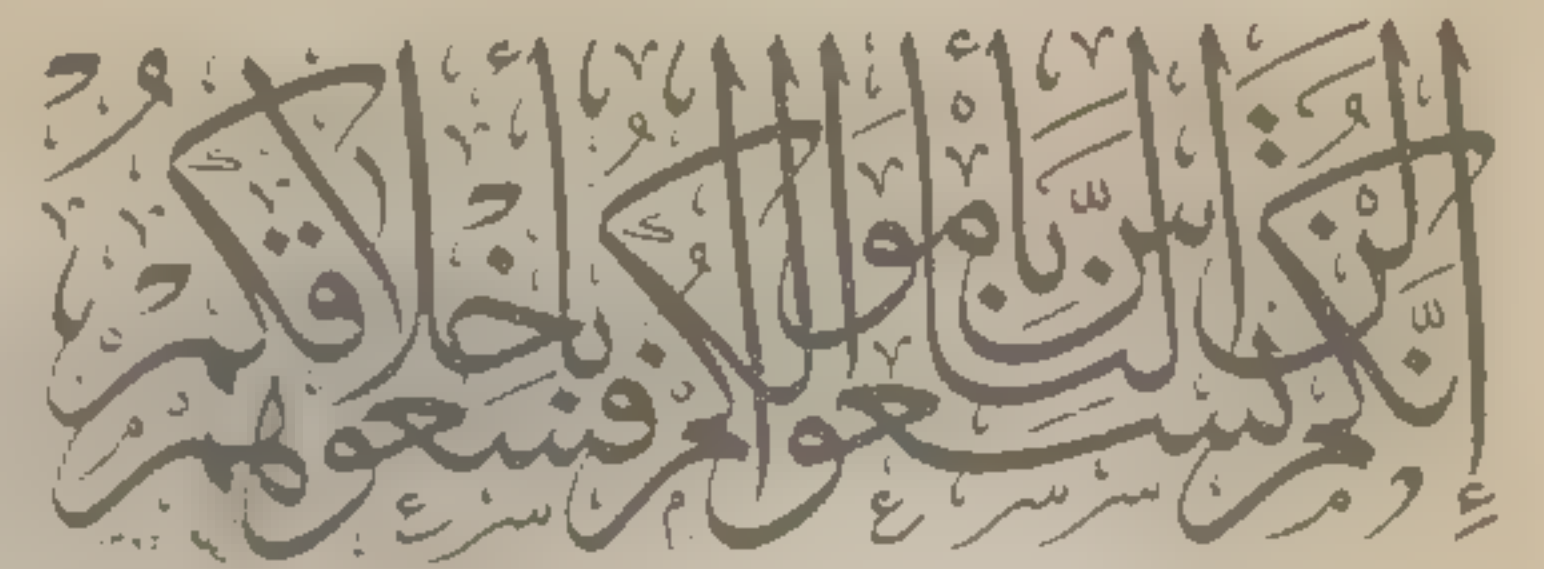 إِنَّكُمْ لَنْ تَسَعُوا النَّاسَ بِأَمْوَالِكُمْ فَسَعُوهُمْ بِأَخْلَاقِكُمْ